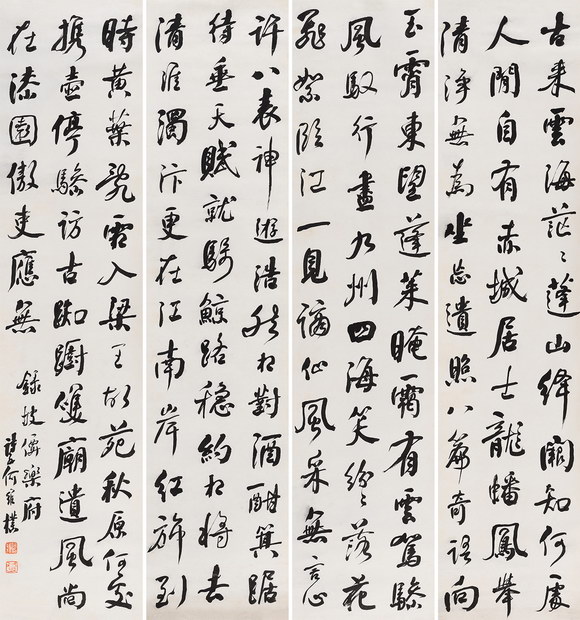 古來雲海茫〻蓬山絳闕知何處
人間自有赤城居士龍蟠鳳舉
清淨無為坐忘遺照八篇奇語向
玉霄東望蓬萊晻靄有雲駕驂
風馭行盡九州四海笑紛〻落花
飛絮臨江一見謫仙風采無言心
許八表神遊浩然相對酒酣箕踞
待垂天賦就騎鯨路穩約相將去
清淮濁汴更在江南岸紅旆到
時黃葉亂霜入梁王故苑秋原何處
攜壺停驂訪古踟躕雙廟遺風尚
在漆園傲吏應無
錄坡僊樂府
詩孫何維樸